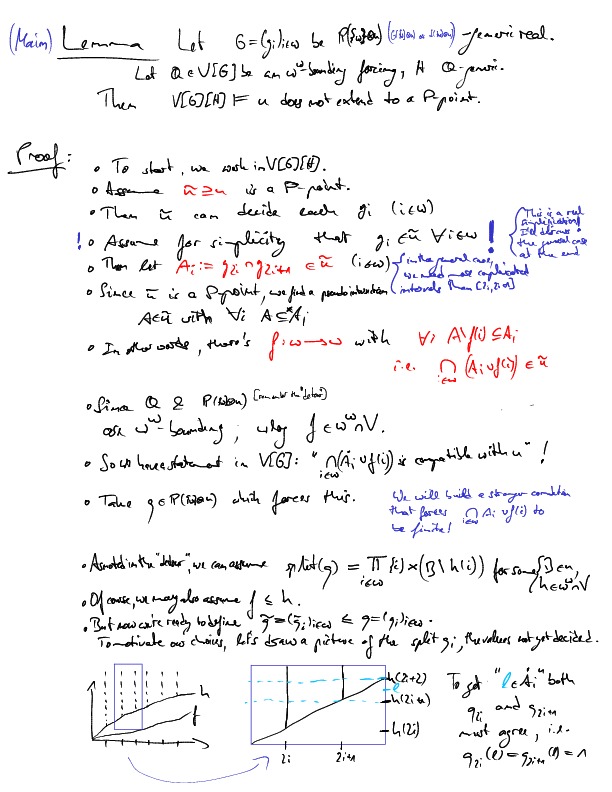 (Main) Lemma Let G=(g_i)_{i∈ω} be P({ω}⊗n) -generic real.
Let Q∈V[G] be an ω^ω-bounding forcing, H Q-generic.
Then V[G][H] ⊨ u does not extend to a P-point.
Proof:
• To start, we work in V[G][H].
• Assume ũ ⊇ u is a P-point.
• Then ũ can decide each g_i (i∈ω)
! • Assume for simplicity that g_i ∈ ũ ∀i∈ω !
This is a real
simplification!
I'll discuss
the general case
at the end
• Then let A_i := g_{2i} ∩ g_{2i+1} ∈ ũ (i∈ω)
In the general case,
we need more complicated
intervals than [2i,2i+1]
• Since ũ is a P-point, we find a pseudointersection
A∈ũ with ∀i A ⊆* A_i
• In other words, there's f:ω→ω with ∀i A\f(i) ⊆ A_i
i.e. ⋂_{i∈ω} (A_i ∪ f(i)) ∈ ũ
• Since Q & P(ω⊗n) [remember the "detour"]
are ω^ω-bounding, wlog f ∈ ω^ω∩V.
• So we have a statement in V[G]: "⋂_{i∈ω}(A_i ∪ f(i)) is compatible with u" !
• Take g∈P(ω⊗n) which forces this.
We will build a stronger condition
that forces ⋂_{i∈ω} A_i ∪ f(i) to
be finite!
• As noted in the "detour", we can assume split(g) = ∏_{i∈ω} {i}×(B\h(i)) for some B∈u, h∈ω^ω∩V
• Of course, we may also assume f ≤ h.
• But now we're ready to define g̃=(g̃_i)_{i∈ω} ≤ g=(g_i)_{i∈ω}.
To motivate our choices, let's draw a picture of the split g_i, the values not yet decided.
h
f
h(2i+2)
l
h(2i+1)
h(2i)
2i
2i+1
To get "l∈A_i" both
g_{2i} and g_{2i+1}
must agree, i.e.
g_{2i}(l) = g_{2i+1}(l) = 1